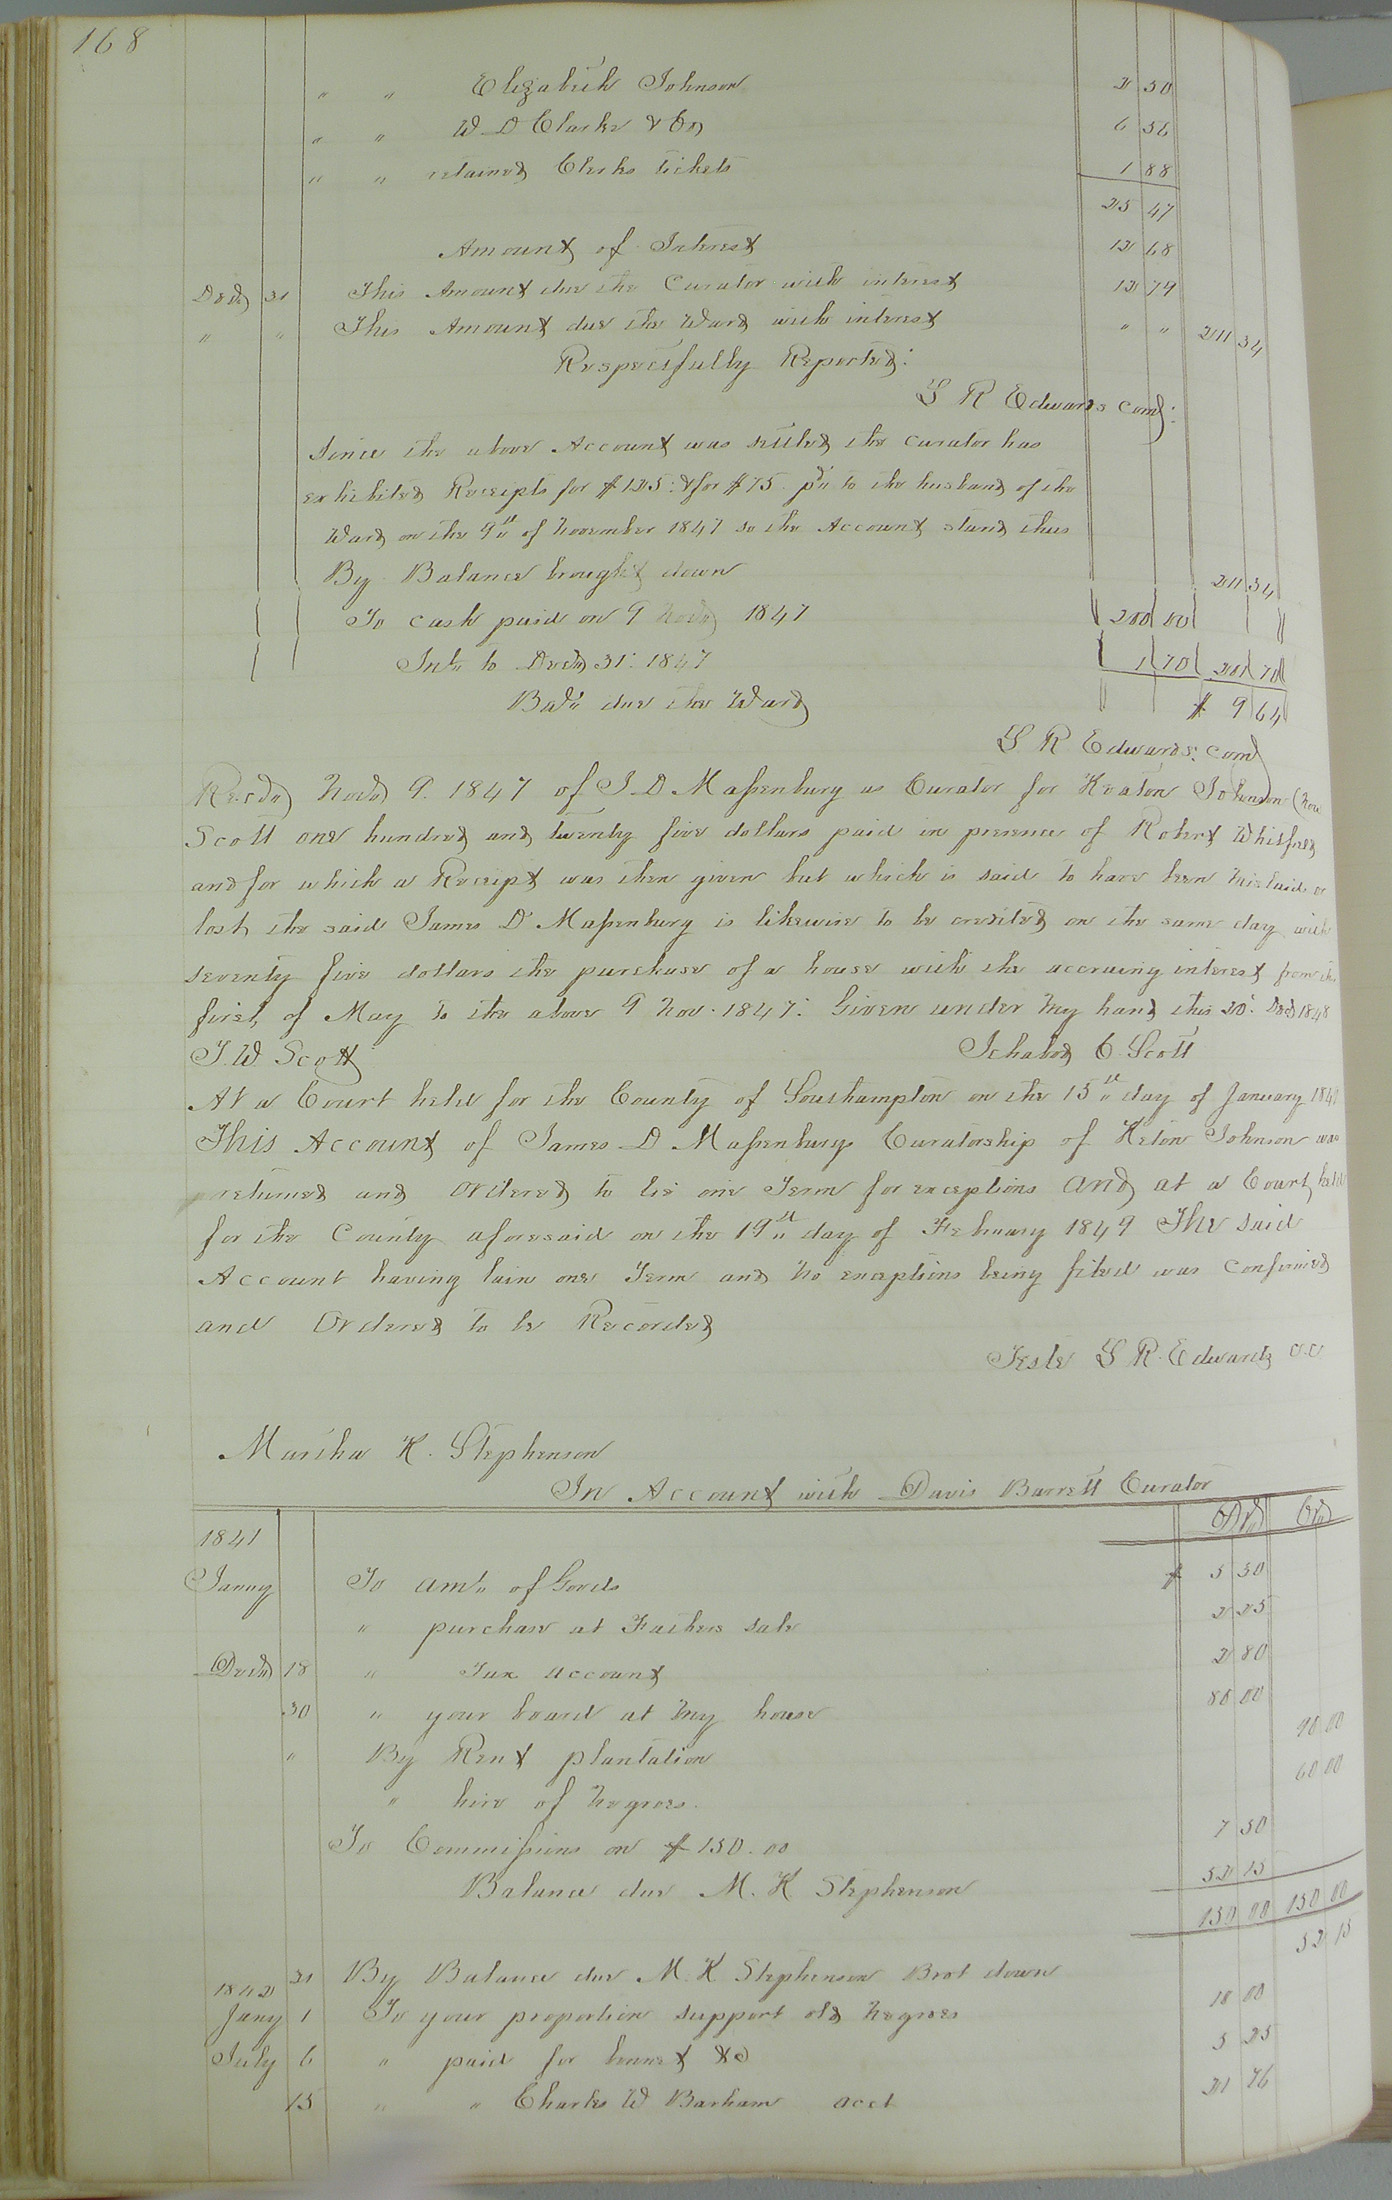 168
" " Elizabeth Johnson 2 50
" " W D Clarke & Co 6 56
" " retained Clerks tickets 1 88
25 47
Amount of Interest 12 68
Decr 31 This Amount due the Curator with interest 12 79
" " This Amount due the Ward with interest " " 211 34
Respectfully Reported:
L R Edwards comr:
Since the above Account was settled the curator has
exhibited Receipts for $125: & for $75 pd to the husband of the
Ward on the 9th of November 1847 so the Account stands thus
By Balance brought down 211 34
To cash paid on 9 Novr 1847 200 00
Int to Decr 31: 1847 1 70 201 70
Bale due the Ward $ 9 64
L R Edwards: comr
Recd Novr 9. 1847 of J. D. Massenburg as Curator for Keaton Johnson (now
Scott one hundred and twenty five dollars paid in presence of Robert Whitfield
and for which a Receipt was then given but which is said to have been mislaid or
lost, the said James D Massenburg is likewise to be credited on the same day with
seventy five dollars the purchase of a house with the accruing interest from the
first, of May to the above 9 Nov. 1847: Given under my hand this 20: Decr 1848
J. W Scott Ichabod C. Scott
At a Court held for the County of Southampton on the 15th day of January 1849
This Account of James D Massenburgs Curatorship of Keton Johnson was
returned and Ordered to lie one Term for exceptions and, at a Court, held
for the County aforesaid on the 19th day of February 1849 The said
Account having lain one Term and no exceptions being filed was Confirmed
and Ordered to be Recorded
Teste L R. Edwards C.C
Martha K. Stephenson
In Account with Davis Barrett Curator
1841 Dr Cr
Janny To amt of Goods $ 5 50
" purchase at Fathers sale 2 25
Decr 18 " Tax account 2 80
30 " your board at my house 80 00
" By Rent plantation 90 00
" hire of negroes. 60 00
To Commissions on $150.00 7 50
Balance due M. K Stephenson 52 15
150 00 150 00
31 By Balance due M. K Stephenson Brot down 52 15
1842
Jany 1 To your proportion support old negroes 10 00
July 6 " paid for bonnet &c 5 25
15 " " Charles W Barham acct 21 76